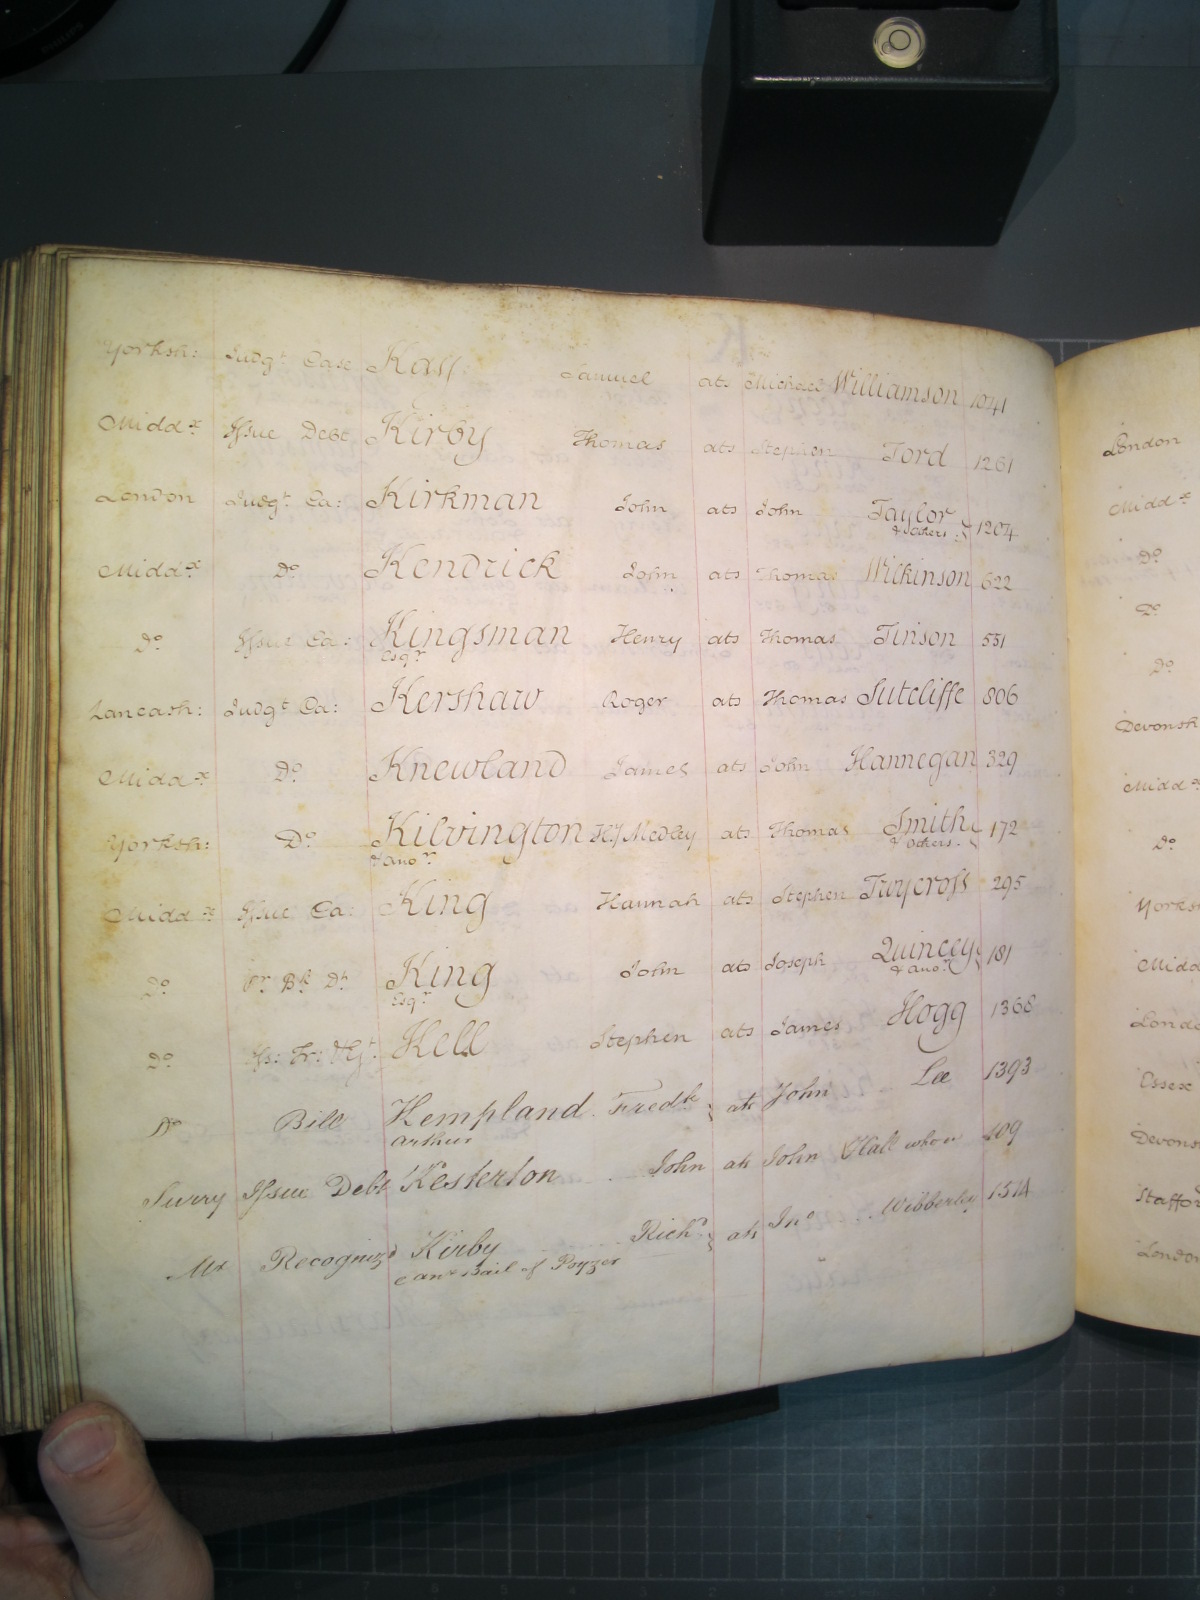 K
Yorksh: Judgt Case Kass Samuel ats Michael Williamson 1041
Middx Issue Debt Kirby Thomas ats Stephen Ford 1261
London Judgt Ca: Kirkman John ats John Taylor 1204
& others
Middx Do Kendrick John ats Thomas Wilkinson 622
Do Issue Ca: Kingsman Henry ats Thomas Tinson 531
Esqr
Lancash: Judgt Ca: Kershaw Roger ats Thomas Sutcliffe 806
Middx Do Knewland James ats John Hannegan 329
Yorksh: Do Kilvington Medley ats Thomas Smith 172
& anor & others
Middx Issue Ca: King Hannah ats Stephen Twycross 295
Do King John ats Joseph Quincey 181
Esqr & anor
Do Kell Stephen ats James Hogg 1368
Do Bill Kempland Fredk ats John Lee 1393
Arthur
Surry Issue Debt Kesterton John ats John 109
Mx Recognizd Kirby Richd ats Jno Wibberley 1514
Bail of Poyzer
London
Middx
Do
Do
Do
Devonsh
Middx
Do
Yorks
Midd
Lond
Essex
Devons
Staffor
London